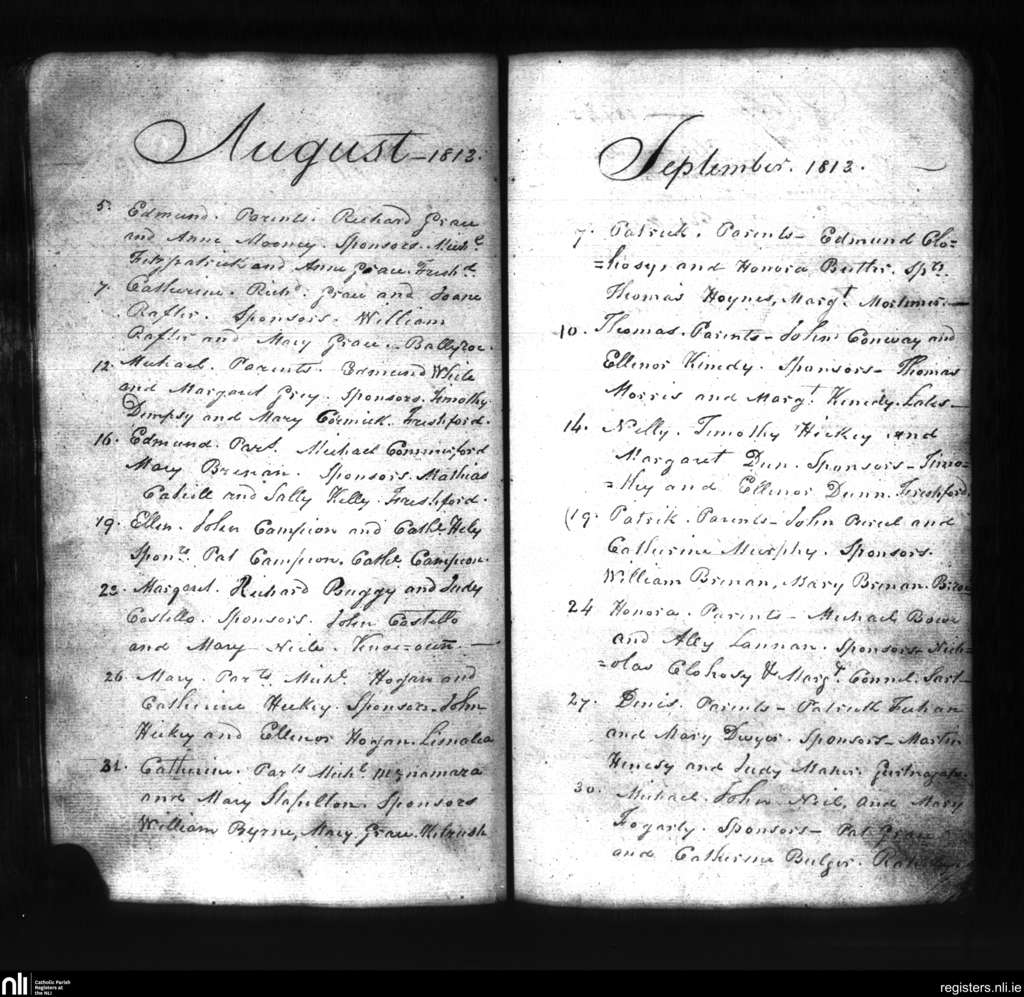 August - 1813.
5. Edmund. Parents. Richard Grace
and Anne Mooney. Sponsors. Mich.l
Fitzpatrick and Anne Grace. Fresh.d
7. Catherine. Rich.d Grace and Joane
Rafter. Sponsors. William
Rafter and Mary Grace. Ballyroe.
12. Michael. Parents. Edmund White
and Margaret Grey. Sponsors. Timothy
Dempsy and Mary Cormick. Freshford.
16. Edmund. Par.ts Michael Commerford
Mary Brenan. Sponsors. Mathias
Cahill and Sally Kelly. Freshford.
19. Ellen. John Campion and Cath.e Hely
Spon.rs Pat Campion. Cath.e Campion.
23. Margaret. Richard Buggy and Judy
Costello. Sponsors. John Costello
and Mary Neile. —
26. Mary. Par.ts Mich.l Hogan and
Catherine Hickey. Sponsors - John
Hickey and Ellenor Hogan. Lisnalea
31. Catherine. Par.ts Mich.l McNamara
and Mary Stapelton. Sponsors
William Byrne, Mary Grace. Kilrush
September. 1813.
7. Patrick. Parents - Edmund Clo=
=hosy, and Honora Butler. Sp.rs
Thomas Hoynes, Marg.t Mortimer. —
10. Thomas. Parents - John Conway and
Ellenor Kinedy. Sponsors - Thomas
Morris and Marg.t Kenedy. —
14. Nelly. Timothy Hickey and
Margaret Dun. Sponsors - Timo=
=thy and Ellenor Dunn. Freshford
(19. Patrik. Parents - John Purcel and
Catherine Murphy. Sponsors.
William Brenan, Mary Brenan.
24 Honora. Parents - Michael Bowe
and Ally Lannan. Sponsors - Nich=
=olas Clohosy & Marg.t Connel. Sart-
27. Dinis. Parents - Patrick Feehan
and Mary Dwyer. Sponsors - Martin
Henesy and Judy Maher.
30. Michael. John Neil, and Mary
Fogarty. Sponsors - Pat Grace
and Catherine Bulger.
nli
Catholic Parish
Registers at
the NLI
registers.nli.ie